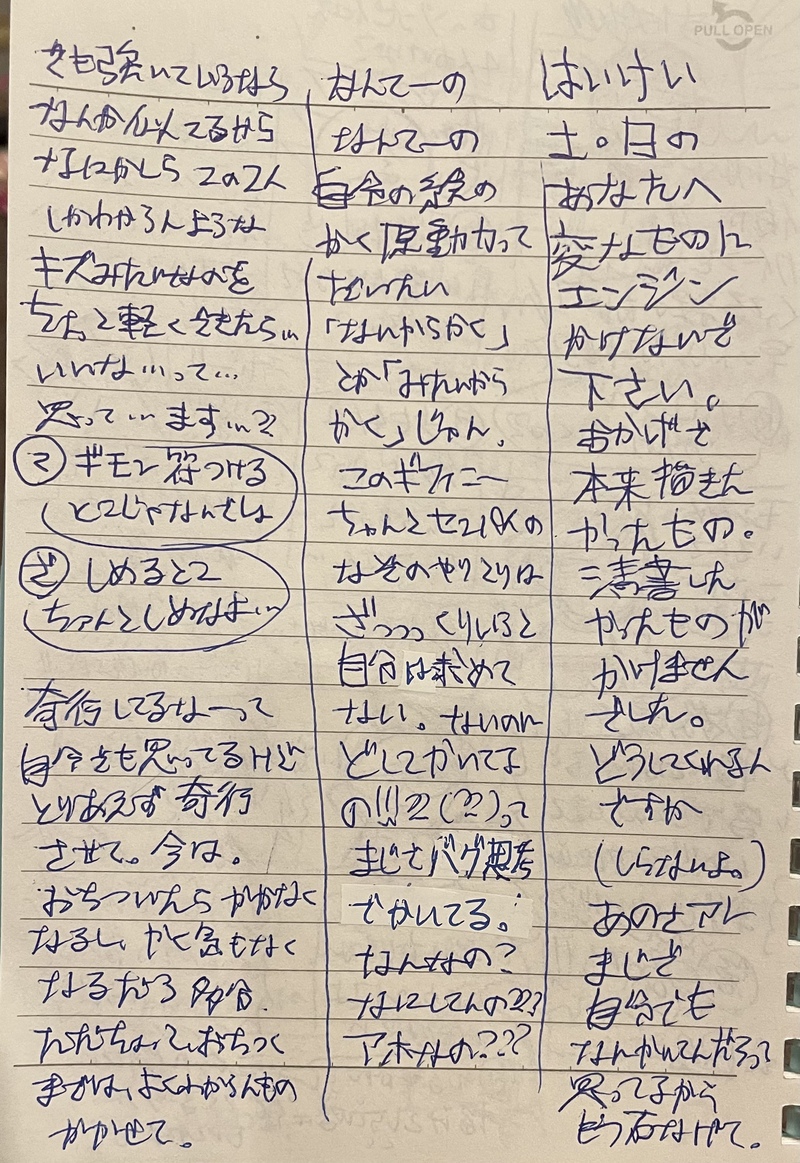 PULL OPEN
はいけい
土。日の
あなたへ
変なものに
エンジン
かけないで
下さい。
おかげで
本来描きた
かったもの。
清書した
かったものが
かけません
でした。
どうしてくれるん
ですか
(しらないよ。)
あのさアレ
まじで
自分でも
なんかいてんだろって
思ってるから
もう石なげて。
なんてーの
なんてーの
自分の絵の
かく原動力って
だいたい
「ないからかく」
とか「みたいから
かく」じゃん。
このギフィニー
ちゃんとセフィロスの
なぞのやりとりは
ざっっっくりいうと
自分は求めて
ない。ないのに
どしてかいてる
の!!!??(??)って
まじでバグ思考
でかいてる。
なんなの?
なにしてんの???
アホなの???
きも強いているなら
なんか似てるから
なにかしらこの2人
しかわからんような
キズみたいなのを
ちょっと軽くできたら…
いいな…って…
思って…ます…??
ギモン符つける
とこじゃなんでしょ
しめるとこ
ちゃんとしめなよ…
奇行してるなーって
自分でも思ってるけど
とりあえず奇行
させて。今は。
おちついたらかかなく
なるし、かく気もなく
なるだろ多分.
ただちょっと、おちつく
までは、よくわからんもの
かかせて。